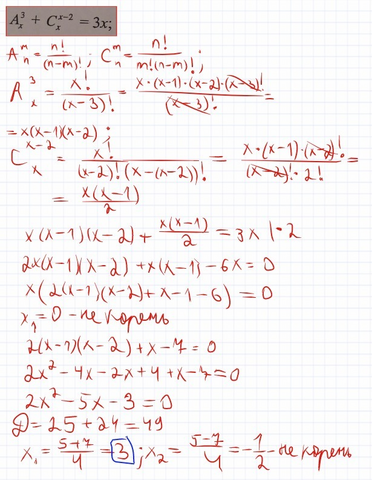 A_x^3 + C_x^{x-2} = 3x;
A_n^m = n!/(n-m)! ; C_n^m = n!/(m!(n-m)!) ;
A_x^3 = x!/(x-3)! = x·(x-1)·(x-2)·(x-3)!/(x-3)! =
= x(x-1)(x-2) ;
C_x^{x-2} = x!/((x-2)!(x-(x-2))!) = x·(x-1)·(x-2)!/((x-2)!·2!) =
= x(x-1)/2
x(x-1)(x-2) + x(x-1)/2 = 3x |·2
2x(x-1)(x-2) + x(x-1) - 6x = 0
x(2(x-1)(x-2) + x-1-6) = 0
x₁ = 0 - не корень
2(x-1)(x-2) + x - 7 = 0
2x² - 4x - 2x + 4 + x - 7 = 0
2x² - 5x - 3 = 0
D = 25 + 24 = 49
x₁ = (5+7)/4 = 3 ; x₂ = (5-7)/4 = -1/2 - не корень